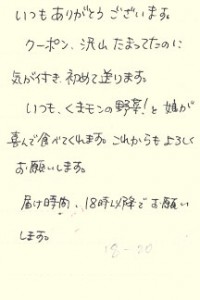 いつもありがとうございます。
クーポン、沢山たまってたのに
気が付き初めて送ります。
いつも、くまモンの野菜!と娘が
喜んで食べてくれます。これからもよろしく
お願いします。
届け時間、18時以降でお願い
します。
18-20